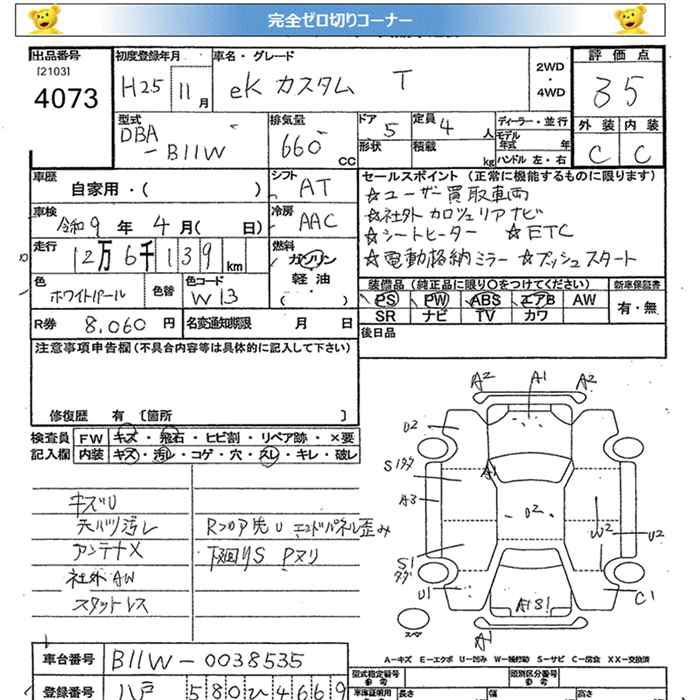 完全ゼロ切りコーナー
出品番号 初度登録年月 車名・グレード 評価点
[2103]
4073 H25 11月 eK カスタム T 2WD・4WD 35
型式 排気量 ドア 定員 ディーラー・並行 外装 内装
DBA 5 4人 モデル年式 年
-B11W 660cc 形状 積載 kg ハンドル 左・右 C C
車歴 自家用・( ) シフト AT セールスポイント (正常に機能するものに限ります)
☆ユーザー買取車両
車検 令和9年 4月( 日) 冷房 AAC ☆社外カロッェリアナビ
☆シートヒーター ☆ETC
走行 12万6千139km 燃料 ガソリン ☆電動格納ミラー ☆プッシュスタート
軽油
( )
色 ホワイトパール 色替 色コード W13 装備品 (純正品に限り○をつけてください) 新車保証書
PS PW ABS エアB AW 有・無
SR ナビ TV カワ
R券 8,060円 名変通知期限 月 日 後日品
注意事項申告欄 (不具合内容等は具体的に記入して下さい)
修復歴 有 [箇所 ]
検査員 FW キズ・飛石・ヒビ割・リペア跡・×要
記入欄 内装 キズ・汚レ・コゲ・穴・スレ・キレ・破レ
A2 A1 A2
U2
S1タグ A1
A3
U2
W2 U2
S1タグ
U1 A1S1 C1
A1
スペア
キズU
天バリ汚レ Rフロア先U エンドパネル歪み
アンテナX 下廻りS Pヌリ
社外AW
スタットレス
A-キズ E-エクボ U-凹み W-補修跡 S-サビ C-腐食 XX-交換済
車台番号 B11W-0038535
型式指定番号 類別区分番号
参考 参考
登録番号 八戸 580 ひ 4669
車庫証明用 長さ 幅 高さ
参考